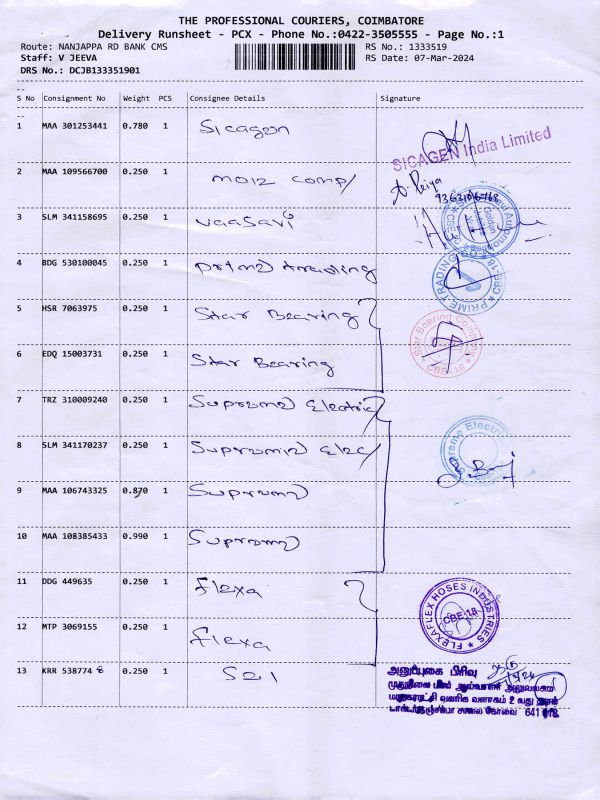 THE PROFESSIONAL COURIERS, COIMBATORE
Delivery Runsheet - PCX - Phone No.:0422-3505555 - Page No.:1
Route: NANJAPPA RD BANK CMS
RS No.: 1333519
Staff: V JEEVA
RS Date: 07-Mar-2024
DRS No.: DCJB133351901
S No Consignment No Weight PCS Consignee Details Signature
1 MAA 301253441 0.780 1 Sicagen
SICAGEN India Limited
2 MAA 109566700 0.250 1 moiz comp/
3 SLM 341158695 0.250 1 vaasavi
4 BDG 530100045 0.250 1
PRIME TRADING
5 HSR 7063975 0.250 1 Star Bearing
Star Bearing
6 EDQ 15003731 0.250 1 Star Bearing
7 TRZ 310009240 0.250 1 Supreme Electric
8 SLM 341170237 0.250 1 Supreme Elec/
Supreme Electri
9 MAA 106743325 0.870 1 Supreme
10 MAA 108385433 0.990 1 Supreme
11 DDG 449635 0.250 1 Flexa
FLEXAFLEX HOSES INDUSTRIES
CBE-18
12 MTP 3069155 0.250 1 Flexa
13 KRR 538774 8 0.250 1 S21
அனுப்புகை பிரிவு
வணிக வளாகம் 2 வது
சாலை கோவை 641 018